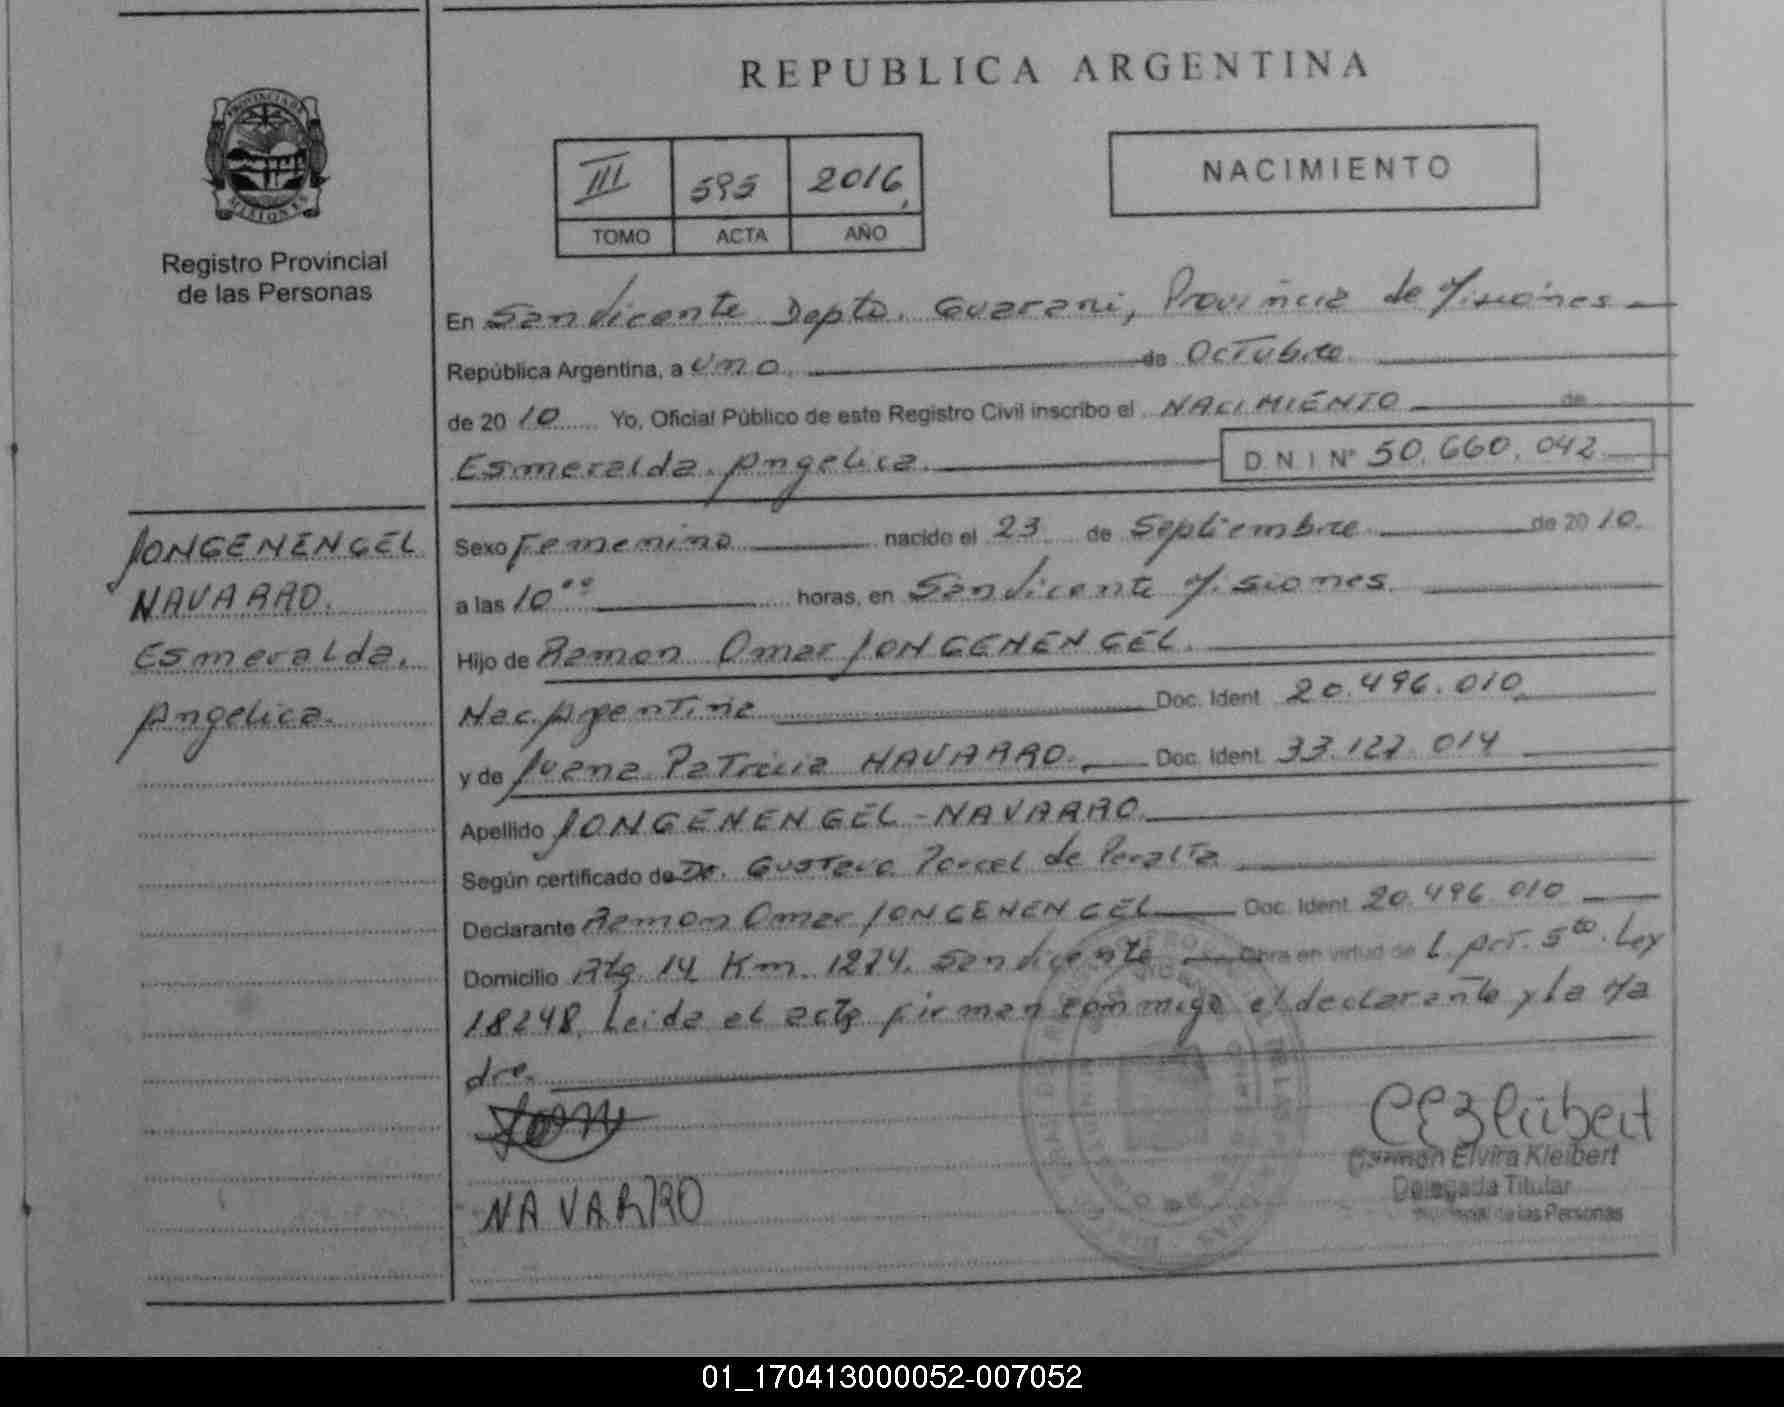 REPUBLICA ARGENTINA
PROVINCIA DE
MISIONES
Registro Provincial
de las Personas
III 595 2016
TOMO ACTA AÑO
NACIMIENTO
En San Vicente Depto. Guarani, Provincia de Misiones
República Argentina, a uno de Octubre
de 2010 Yo, Oficial Público de este Registro Civil inscribo el NACIMIENTO de
Esmeralda Angelica D N I Nº 50.660.042
JONGENENGEL
NAVARRO.
Esmeralda.
Angelica.
Sexo Femenino nacido el 23 de Septiembre de 2010.
a las 10 °° horas, en San Vicente Misiones
Hijo de Ramon Omar JONGENENGEL.
Nac. Argentina Doc. Ident 20.496.010
y de Juana Patricia NAVARRO. Doc. Ident. 33.127.014
Apellido JONGENENGEL - NAVARRO
Según certificado de Dr. Gustavo Porcel de Peralta
Declarante Ramon Omar JONGENENGEL Doc. Ident. 20.496.010
Domicilio Rta 14 Km. 1274. San Vicente Obra en virtud de L. Art. 5to. Ley
18248. Leida el acta firman conmigo el declarante y la Ma
dre.
NAVARRO
Carmen Elvira Kleibert
Delegada Titular
de las Personas
01_170413000052-007052